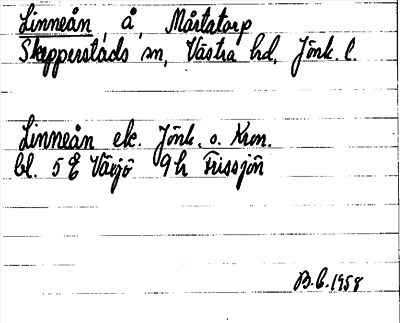 Linneån, å, Mårtatorp
Skepperstads sn, Västra hd, Jönk. l.
Linneån ek. Jönk. o. Kron.
bl. 5 E Växjö 9 h Frissjön
B.C. 1958